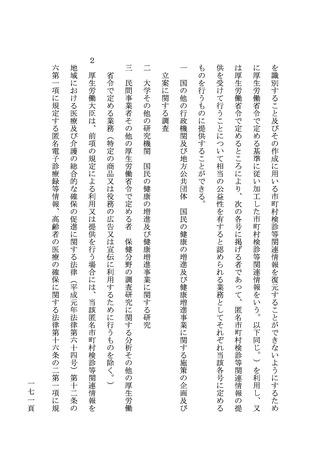 を識別すること及びその作成に用いる市町村検診等関連情報を復元することができないようにするため
に厚生労働省令で定める基準に従い加工した市町村検診等関連情報をいう。以下同じ。）を利用し、又
は厚生労働省令で定めるところにより、次の各号に掲げる者であって、匿名市町村検診等関連情報の提
供を受けて行うことについて相当の公益性を有すると認められる業務としてそれぞれ当該各号に定める
ものを行うものに提供することができる。
一　国の他の行政機関及び地方公共団体　国民の健康の増進及び健康増進事業に関する施策の企画及び
立案に関する調査
二　大学その他の研究機関　国民の健康の増進及び健康増進事業に関する研究
三　民間事業者その他の厚生労働省令で定める者　保健分野の調査研究に関する分析その他の厚生労働
省令で定める業務（特定の商品又は役務の広告又は宣伝に利用するために行うものを除く。）
２　厚生労働大臣は、前項の規定による利用又は提供を行う場合には、当該匿名市町村検診等関連情報を
地域における医療及び介護の総合的な確保の促進に関する法律（平成元年法律第六十四号）第十二条の
六第一項に規定する匿名電子診療録等情報、高齢者の医療の確保に関する法律第十六条の二第一項に規
一七一頁